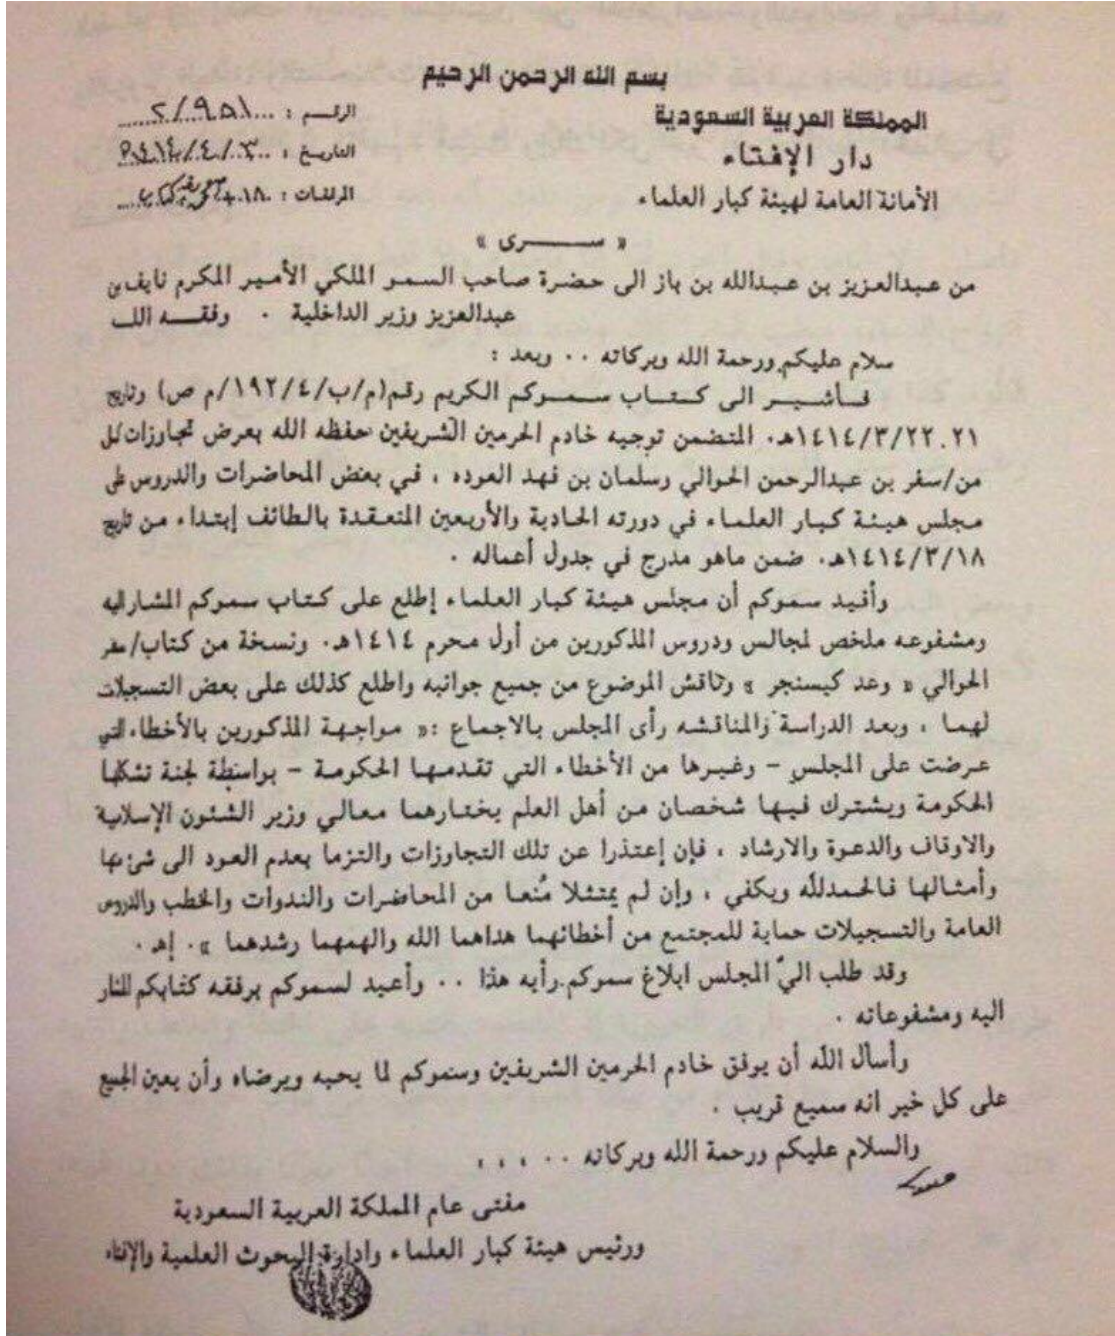 بسم الله الرحمن الرحيم
المملكة العربية السعودية
دار الإفتاء
الأمانة العامة لهيئة كبار العلماء
الرقم : ٢/٩٥١
التاريخ : ١٤١٤/٤/٣هـ
المرفقات : ١٨ +
« ســـرى »
من عبدالعزيز بن عبدالله بن باز الى حضرة صاحب السمو الملكي الأمير المكرم نايف بن
عبدالعزيز وزير الداخلية . وفقه الله
سلام عليكم ورحمة الله وبركاته .. وبعد :
فأشير الى كتاب سموكم الكريم رقم(م/ب/١٩٢/٤/م ص) وتاريخ
١٤١٤/٣/٢٢.٢١هـ. المتضمن توجيه خادم الحرمين الشريفين حفظه الله بعرض تجاوزات كل
من/سفر بن عبدالرحمن الحوالي وسلمان بن فهد العوده ، في بعض المحاضرات والدروس على
مجلس هيئة كبار العلماء في دورته الحادية والأربعين المنعقدة بالطائف إبتداء من تاريخ
١٤١٤/٣/١٨هـ. ضمن ماهو مدرج في جدول أعماله .
وأفيد سموكم أن مجلس هيئة كبار العلماء إطلع على كتاب سموكم المشار اليه
ومشفوعه ملخص لمجالس ودروس المذكورين من أول محرم ١٤١٤هـ. ونسخة من كتاب/سفر
الحوالي « وعد كيسنجر » وناقش الموضوع من جميع جوانبه واطلع كذلك على بعض التسجيلات
لهما ، وبعد الدراسة والمناقشه رأى المجلس بالاجماع :« مواجهة المذكورين بالأخطاء التي
عرضت على المجلس - وغيرها من الأخطاء التي تقدمها الحكومة - بواسطة لجنة تشكلها
الحكومة ويشترك فيها شخصان من أهل العلم يختارهما معالي وزير الشئون الإسلامية
والاوقاف والدعوة والارشاد ، فإن إعتذرا عن تلك التجاوزات والتزما بعدم العود الى شئ منها
وأمثالها فالحمدلله ويكفي ، وإن لم يمتثلا مُنعا من المحاضرات والندوات والخطب والدروس
العامة والتسجيلات حماية للمجتمع من أخطائهما هداهما الله والهمهما رشدهما ». إهـ .
وقد طلب اليّ المجلس ابلاغ سموكم رأيه هذا .. وأعيد لسموكم برفقه كتابكم المشار
اليه ومشفوعاته .
وأسأل الله أن يوفق خادم الحرمين الشريفين وسموكم لما يحبه ويرضاه وأن يعين الجميع
على كل خير انه سميع قريب .
والسلام عليكم ورحمة الله وبركاته .. ، ، ،
مفتى عام المملكة العربية السعودية
ورئيس هيئة كبار العلماء وادارة البحوث العلمية والإفتاء